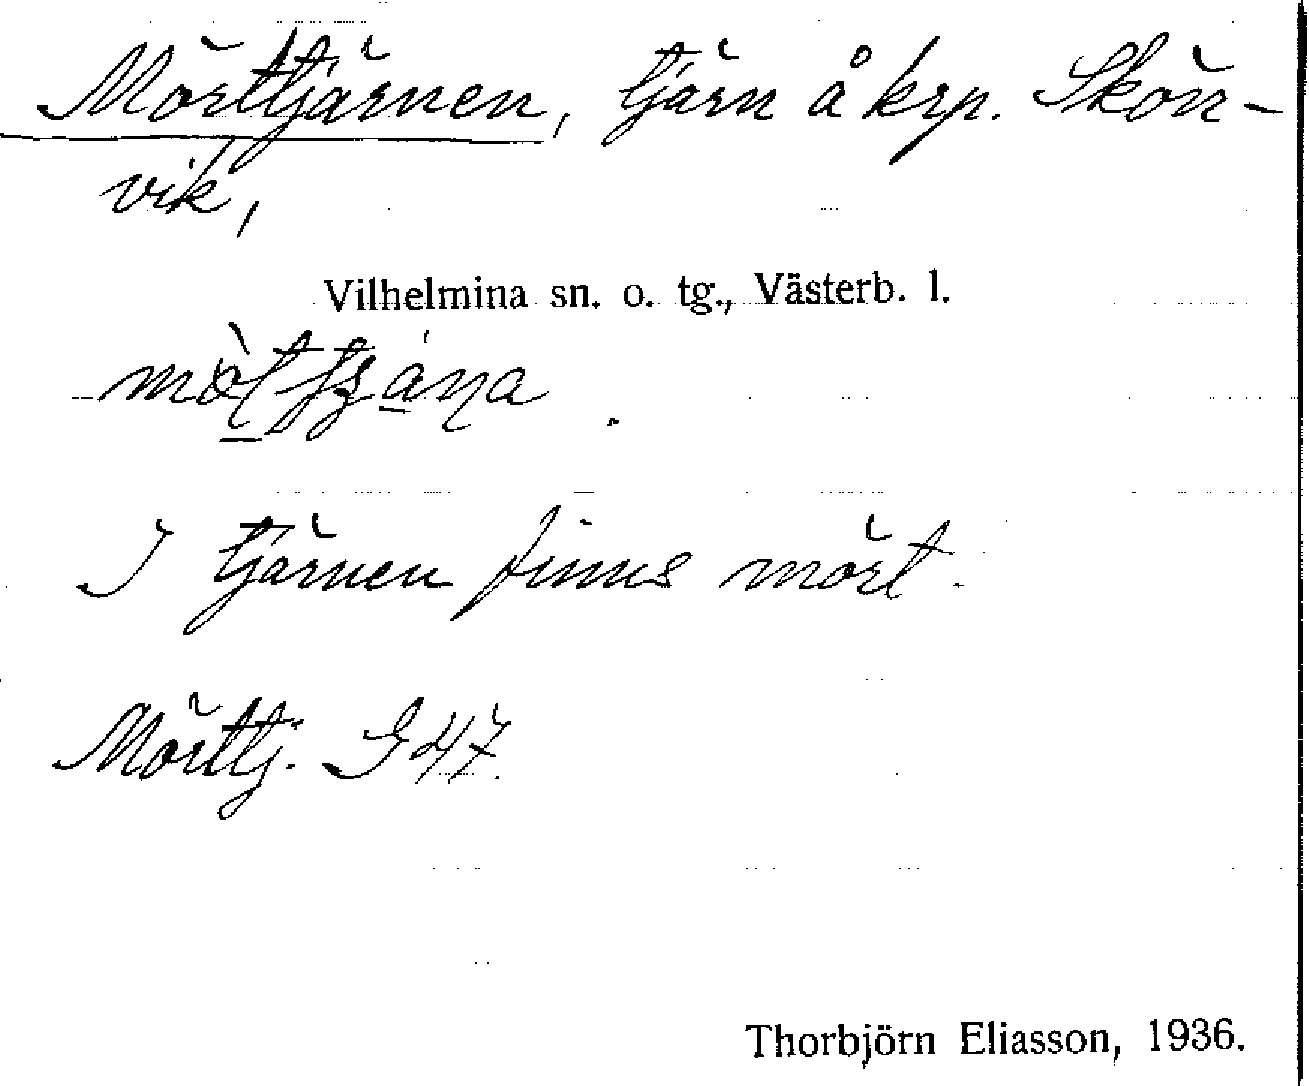 Mörttjärnen, tjärn å krp. Skön-
vik,
Vilhelmina sn. o. tg., Västerb. l.
I tjärnen finns mört.
Mörttj. G 47
Thorbjörn Eliasson, 1936.